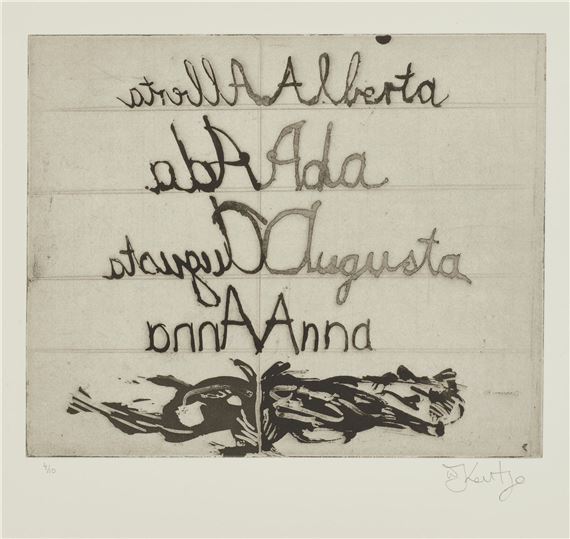 Alberta Alberta
Ada Ada
Augusta Augusta
Anna Anna
4/10